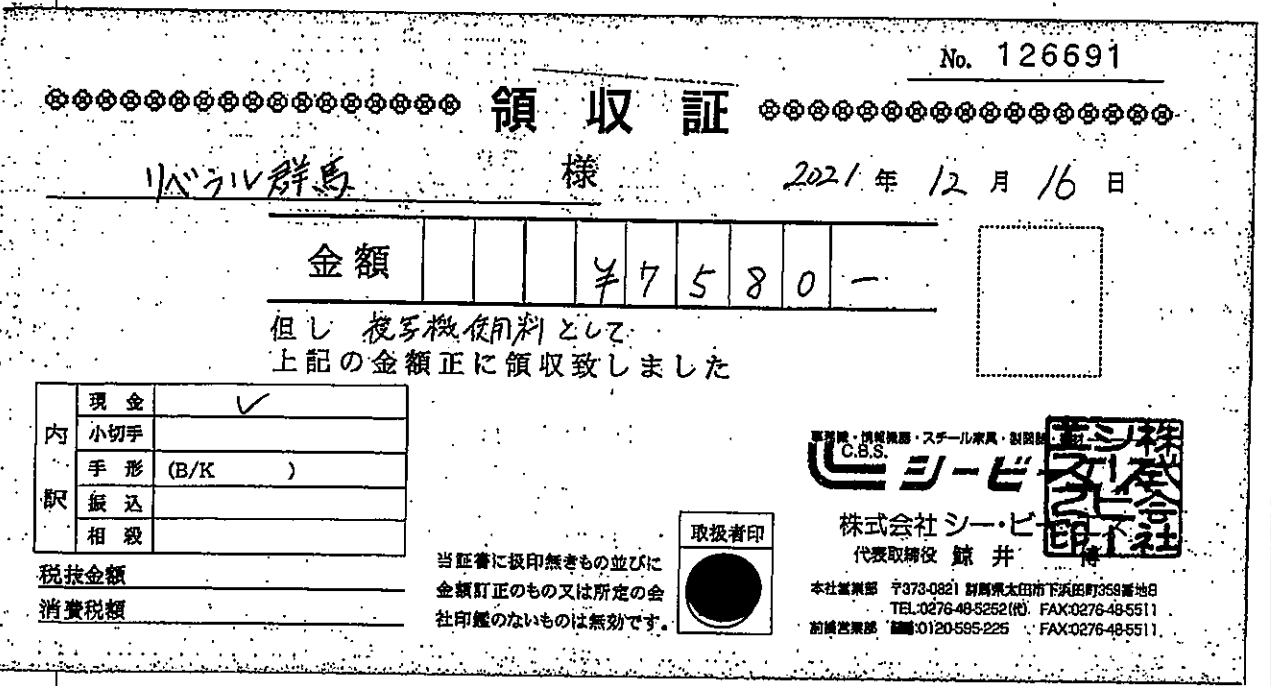 No. 126691
領収証
リベラル群馬 様 2021年12月16日
金額 ¥7580-
但し 複写機使用料として
上記の金額正に領収致しました
内訳
現金 ✓
小切手
手形 (B/K )
振込
相殺
税抜金額
消費税額
当証書に扱印無きもの並びに
金額訂正のもの又は所定の会
社印鑑のないものは無効です。
取扱者印
事務機・情報機器・スチール家具・製図
C.B.S.
シービー
株式会社 シー・ビー
代表取締役 鯨井 博
株式会社シービーエス之印
本社営業部 〒373-0821 群馬県太田市下浜田町359番地8
TEL:0276-48-5252(代) FAX:0276-48-5511
前橋営業部 :0120-595-225 FAX:0276-48-5511